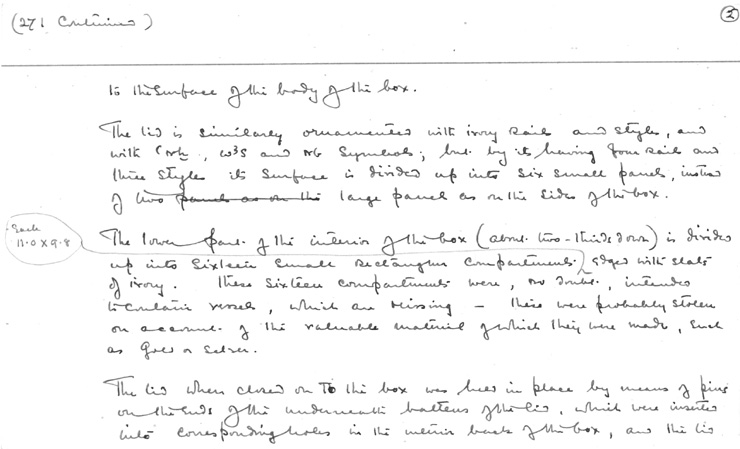 (271 Continued)
②
to the surface of the body of the box.
The lid is similarly ornamented with ivory rails and styles, and
with Ꜥnḫ, wꜢs and nb symbols; but by its having four rails and
three styles its surface is divided up into six small panels, instead
of two panels as on the large panels as on the sides of the box.
Each
11.0 X 9.8
The lower part of the interior of the box (about two-thirds down) is divided
up into sixteen small rectangular compartments edged with slats
of ivory. These sixteen compartments were, no doubt, intended
to contain vessels, which are missing — these were probably stolen
on account of the valuable material of which they were made, such
as gold or silver.
The lid when closed on to the box was held in place by means of pins
on the ends of the underneath battens of the lid, which were inserted
into corresponding holes in the interior back of the box, and the lid